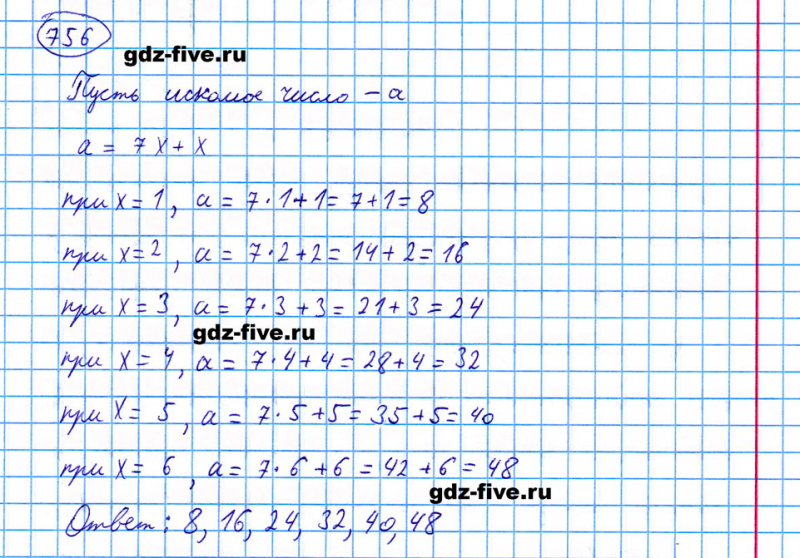 756
gdz-five.ru
Пусть искомое число – а
а = 7х + х
при х = 1, а = 7·1+1 = 7+1 = 8
при х = 2, а = 7·2+2 = 14+2 = 16
при х = 3, а = 7·3+3 = 21+3 = 24
gdz-five.ru
при х = 4, а = 7·4+4 = 28+4 = 32
при х = 5, а = 7·5+5 = 35+5 = 40
при х = 6, а = 7·6+6 = 42+6 = 48
gdz-five.ru
Ответ: 8, 16, 24, 32, 40, 48